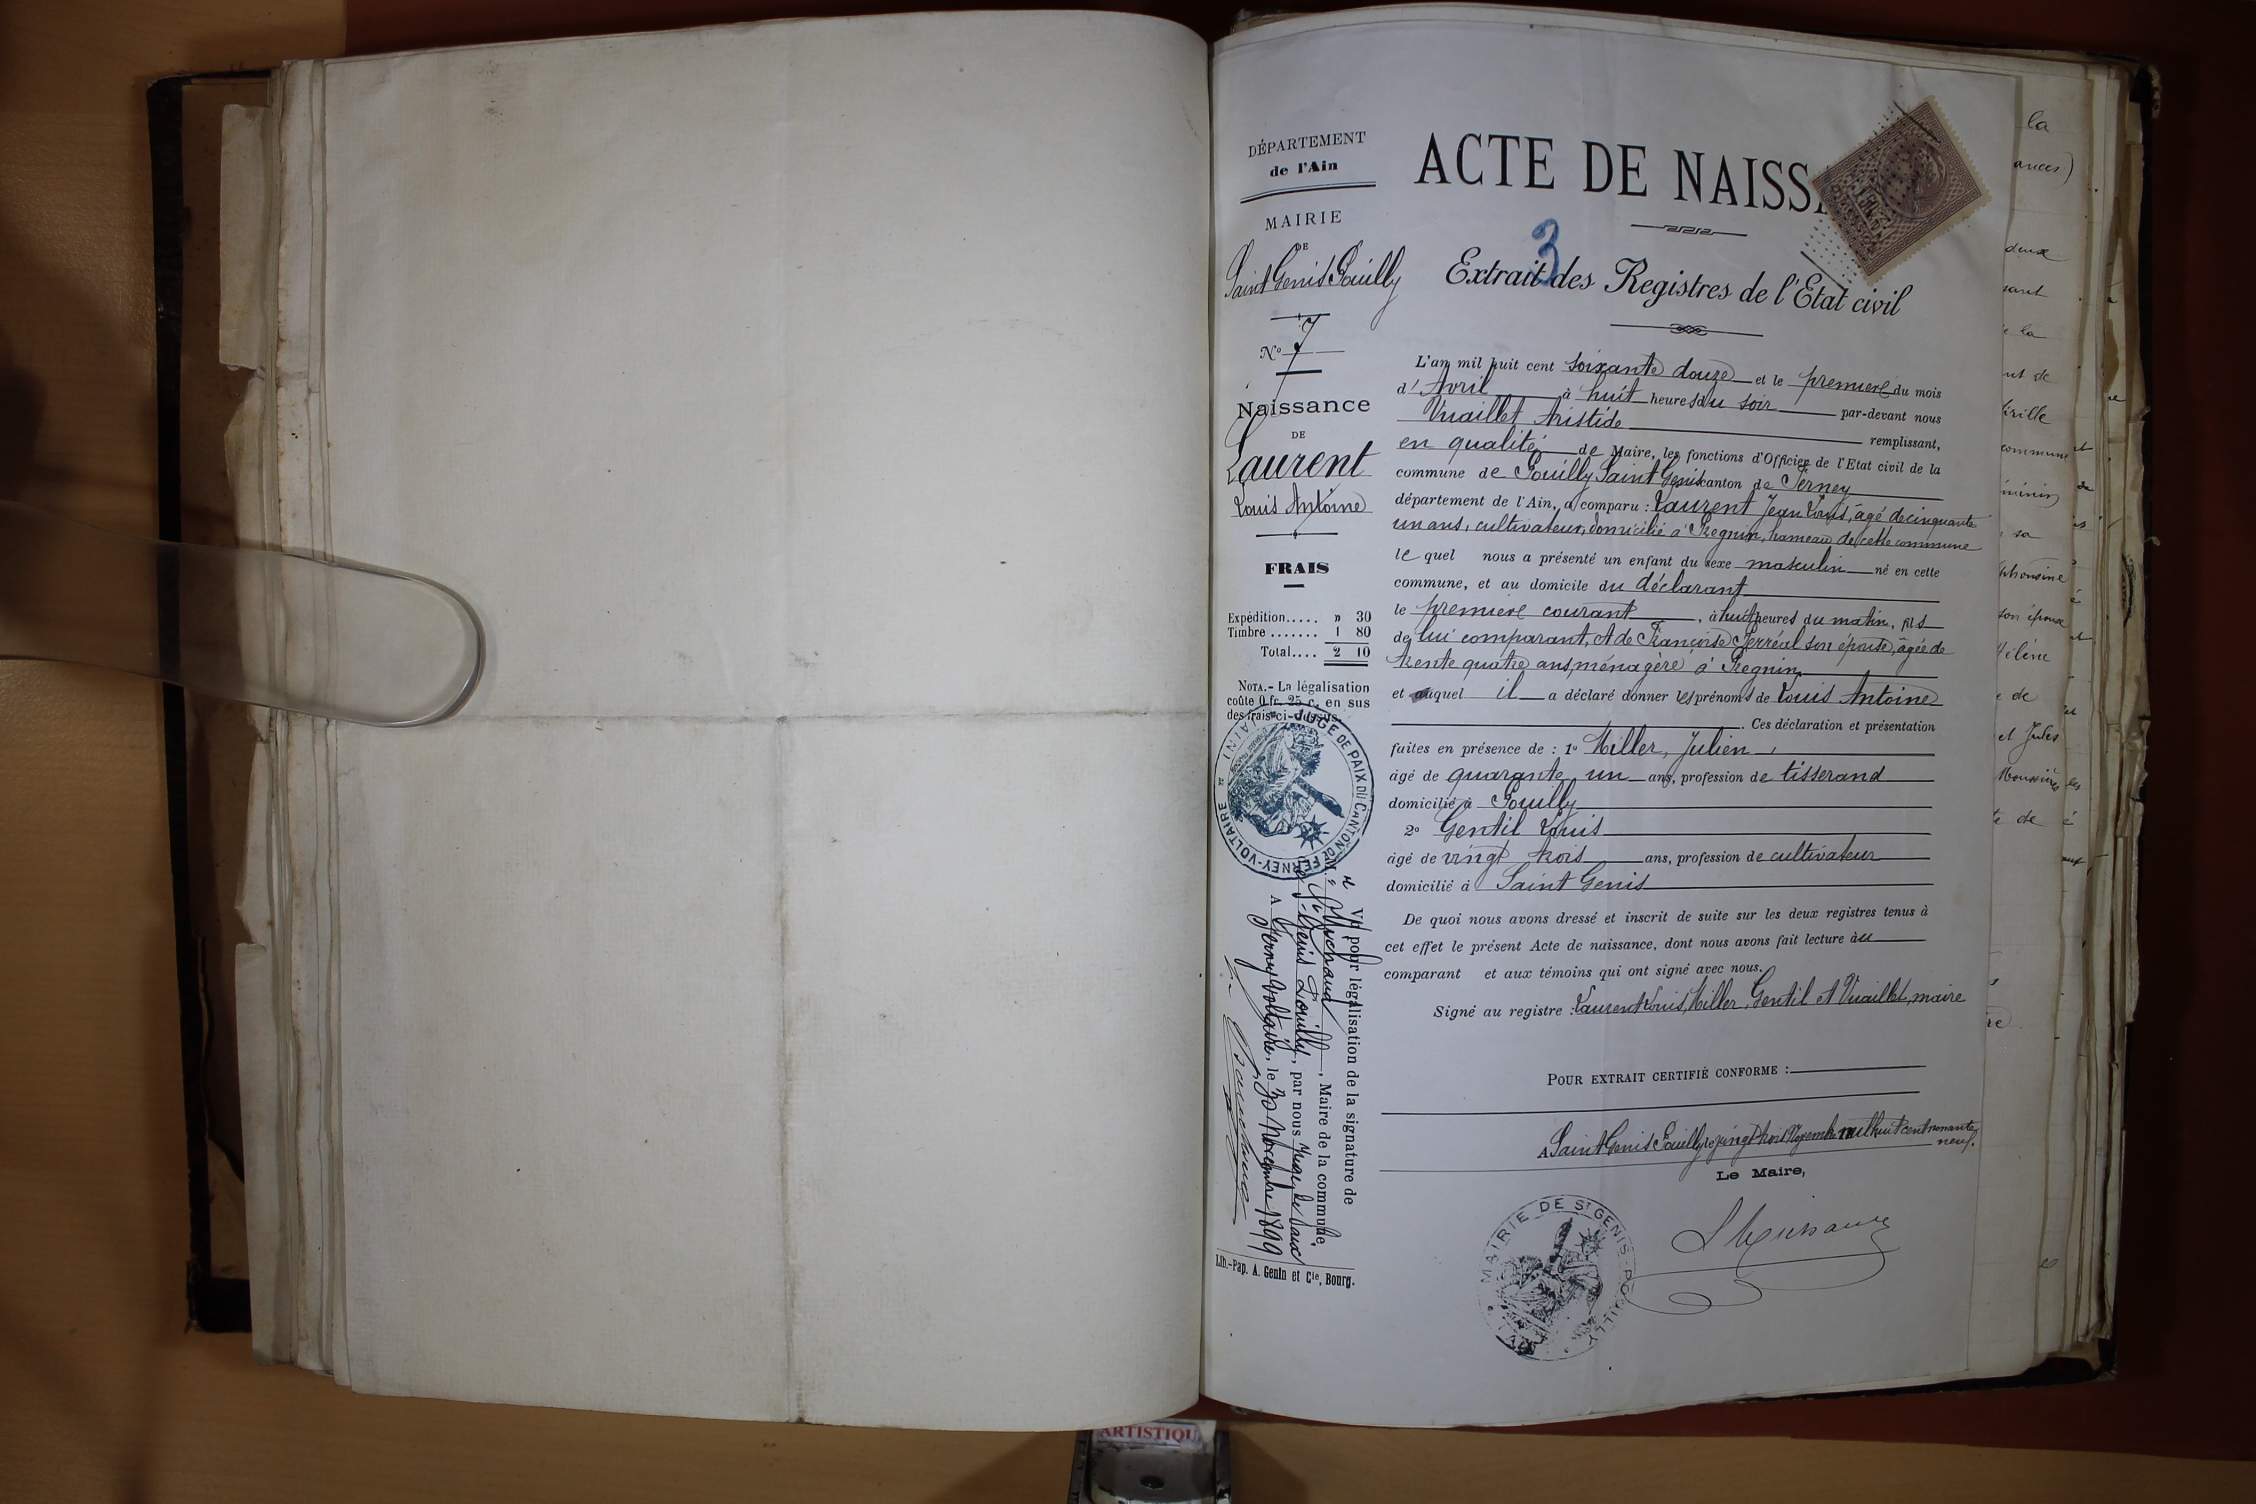 DÉPARTEMENT
de l'Ain
MAIRIE
DE
Saint Genis Pouilly
N° 7
Naissance
DE
Laurent
Louis Antoine
FRAIS
Expédition..... » 30
Timbre ....... 1 80
Total.... 2 10
NOTA.- La légalisation
coûte 0 fr. 25 c. en sus
des frais ci-dessus.
JUGE DE PAIX DU CANTON DE FERNEY-VOLTAIRE (AIN)
Vu pour légalisation de la signature de
M. Michaud, Maire de la commune
de St Genis Pouilly, par nous Juge de Paix
A Ferney Voltaire, le 30 Novembre 1899
Lib.-Pap. A. Genin et Cie, Bourg.
ACTE DE NAISS
3
Extrait des Registres de l'Etat civil
L'an mil huit cent soixante douze et le premiere du mois
d'Avril à huit heures du soir par-devant nous
Vuaillet Aristide remplissant,
en qualité de Maire, les fonctions d'Officier de l'Etat civil de la
commune de Pouilly Saint Genis canton de Ferney
département de l'Ain, a comparu : Laurent Jean Louis, âgé de cinquante
un ans, cultivateur, domicilié à Pregnin, hameau de cette commune
le quel nous a présenté un enfant du sexe masculin né en cette
commune, et au domicile du déclarant
le premiere courant, à huit heures du matin, fils
de lui comparant, et de Françoise son épouse, âgée de
trente quatre ans, ménagère à Pregnin
et auquel il a déclaré donner les prénoms de Louis Antoine
. Ces déclaration et présentation
faites en présence de : 1° Miller, Julien,
âgé de quarante un ans, profession de tisserand
domicilié à Pouilly
2° Gentil Louis
âgé de vingt trois ans, profession de cultivateur
domicilié à Saint Genis
De quoi nous avons dressé et inscrit de suite sur les deux registres tenus à
cet effet le présent Acte de naissance, dont nous avons fait lecture au
comparant et aux témoins qui ont signé avec nous.
Signé au registre : Laurent Louis, Miller, Gentil et Vuaillet, maire
POUR EXTRAIT CERTIFIÉ CONFORME :
A Saint Genis Pouilly le vingt trois Novembre mil huit cent nonante
neuf.
Le Maire,
MAIRIE DE ST GENIS-POUILLY (AIN)
la
ances)
deux
sant
la
de
commune
sa
son époux
de
et Jules
de
ARTISTIQU